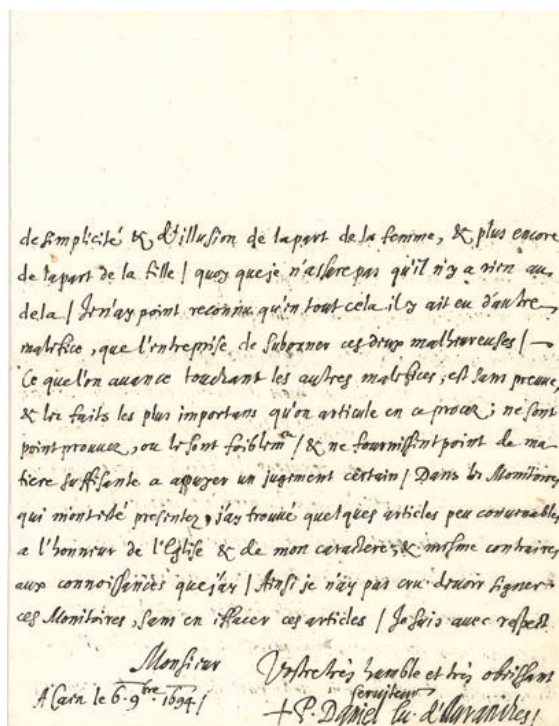 de simplicité & d'illusion de la part de la femme, & plus encore
de la part de la fille / quoy que je n'assure pas qu'il n'y a rien au
dela / Je n'ay point reconnu qu'en tout cela il y ait eu d'autre
malefice, que l'entreprise de suborner ces deux malheureuses / —
Ce que l'on avance touchant les autres malefices, est sans preuve,
& les faits les plus importans qu'on articule en ce procez; ne sont
point prouvez, ou le sont foiblemt / & ne fournissent point de ma-
tiere suffisante a appuyer un jugement certain / Dans les Monitoires
qui m'ont esté presentez, j'ay trouvé quelques articles peu convenables
a l'honneur de l'Eglise & de mon caractere, & mesme contraires
aux connoissances que j'ay / Ainsi je n'ay pas cru devoir signer
ces Monitoires, sans en effacer ces articles / Je suis avec respect
Monsieur
Vostre tres humble et tres obeissant
serviteur
A Caen le 6. 9bre. 1694 /
+ P. Daniel Ev. d'Avranches /